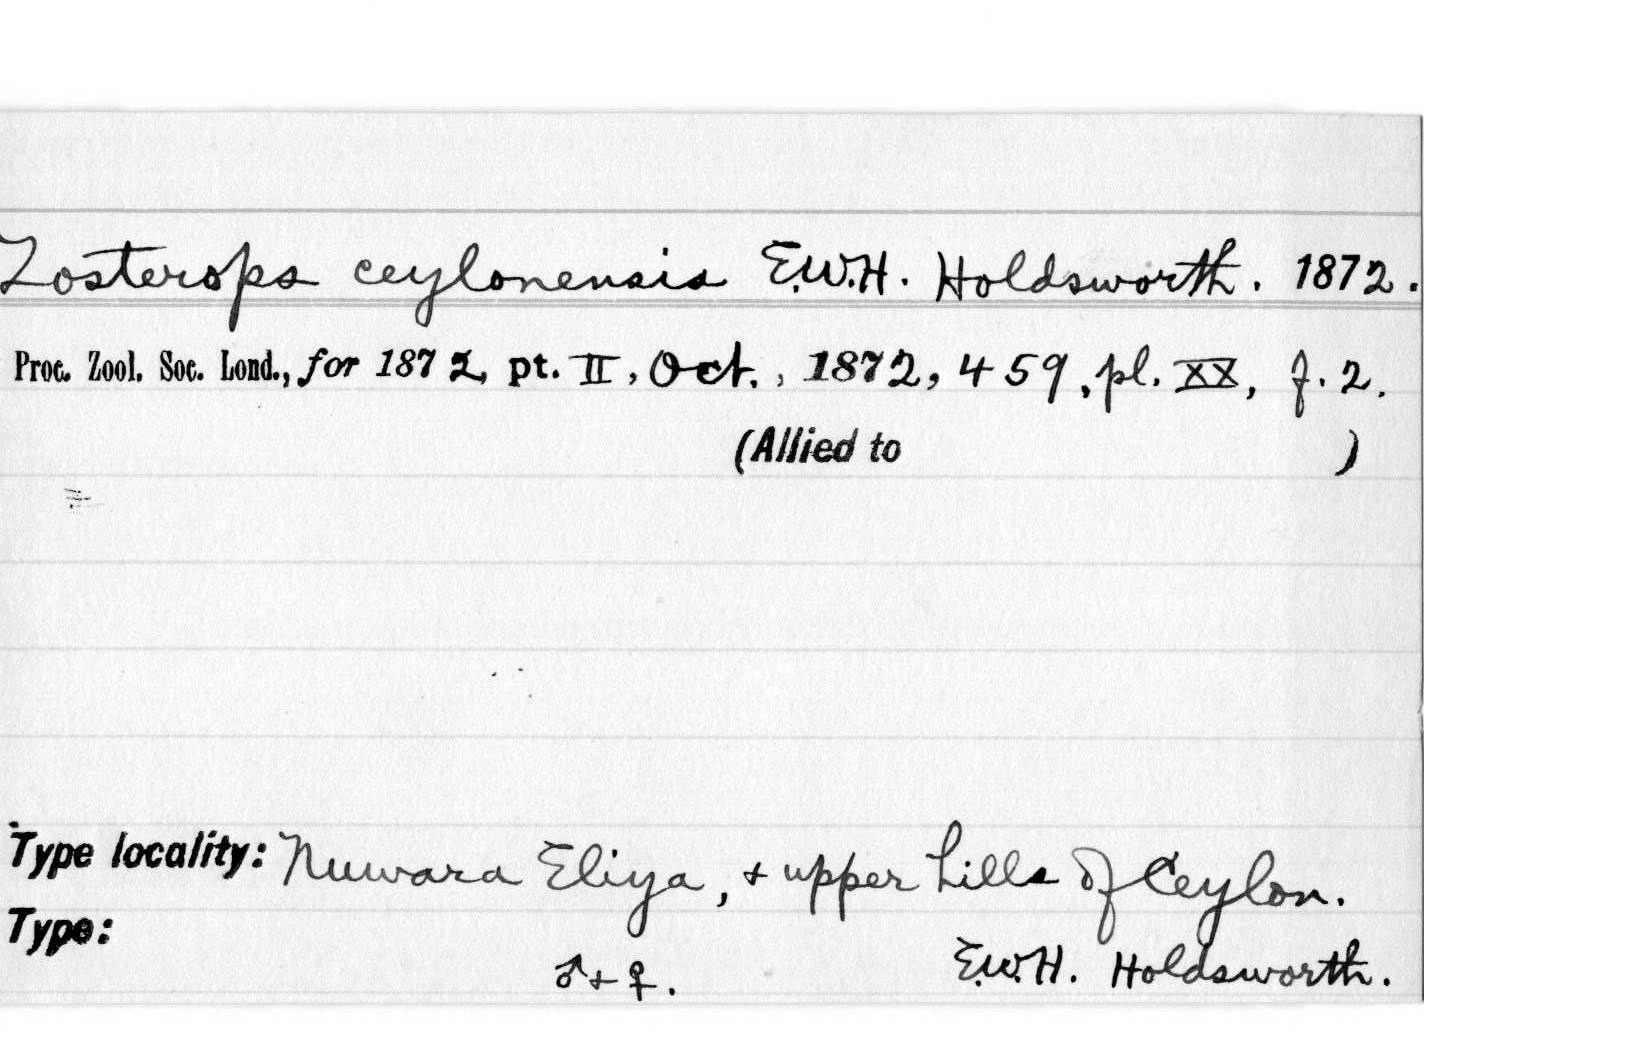 Zosterops ceylonensis E.W.H. Holdsworth. 1872.
Proc. Zool. Soc. Lond., for 1872, pt. II, Oct., 1872, 459, pl. XX, f. 2.
(Allied to )
Type locality: Nuwara Eliya, + upper hills of Ceylon.
Type:
♂ + ♀. E.W.H. Holdsworth.